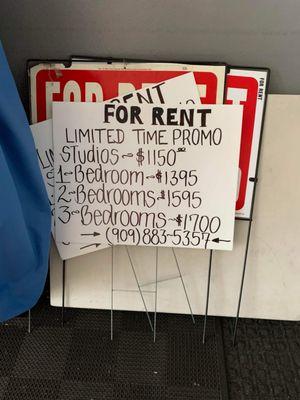 FOR RENT
FOR RENT
RENT
FOR RENT
LIMITED TIME PROMO
Studios - $1150.00
1-Bedroom - $1395
2-Bedrooms - $1595
3-Bedrooms - $1700
→ (909) 883-5357 ←